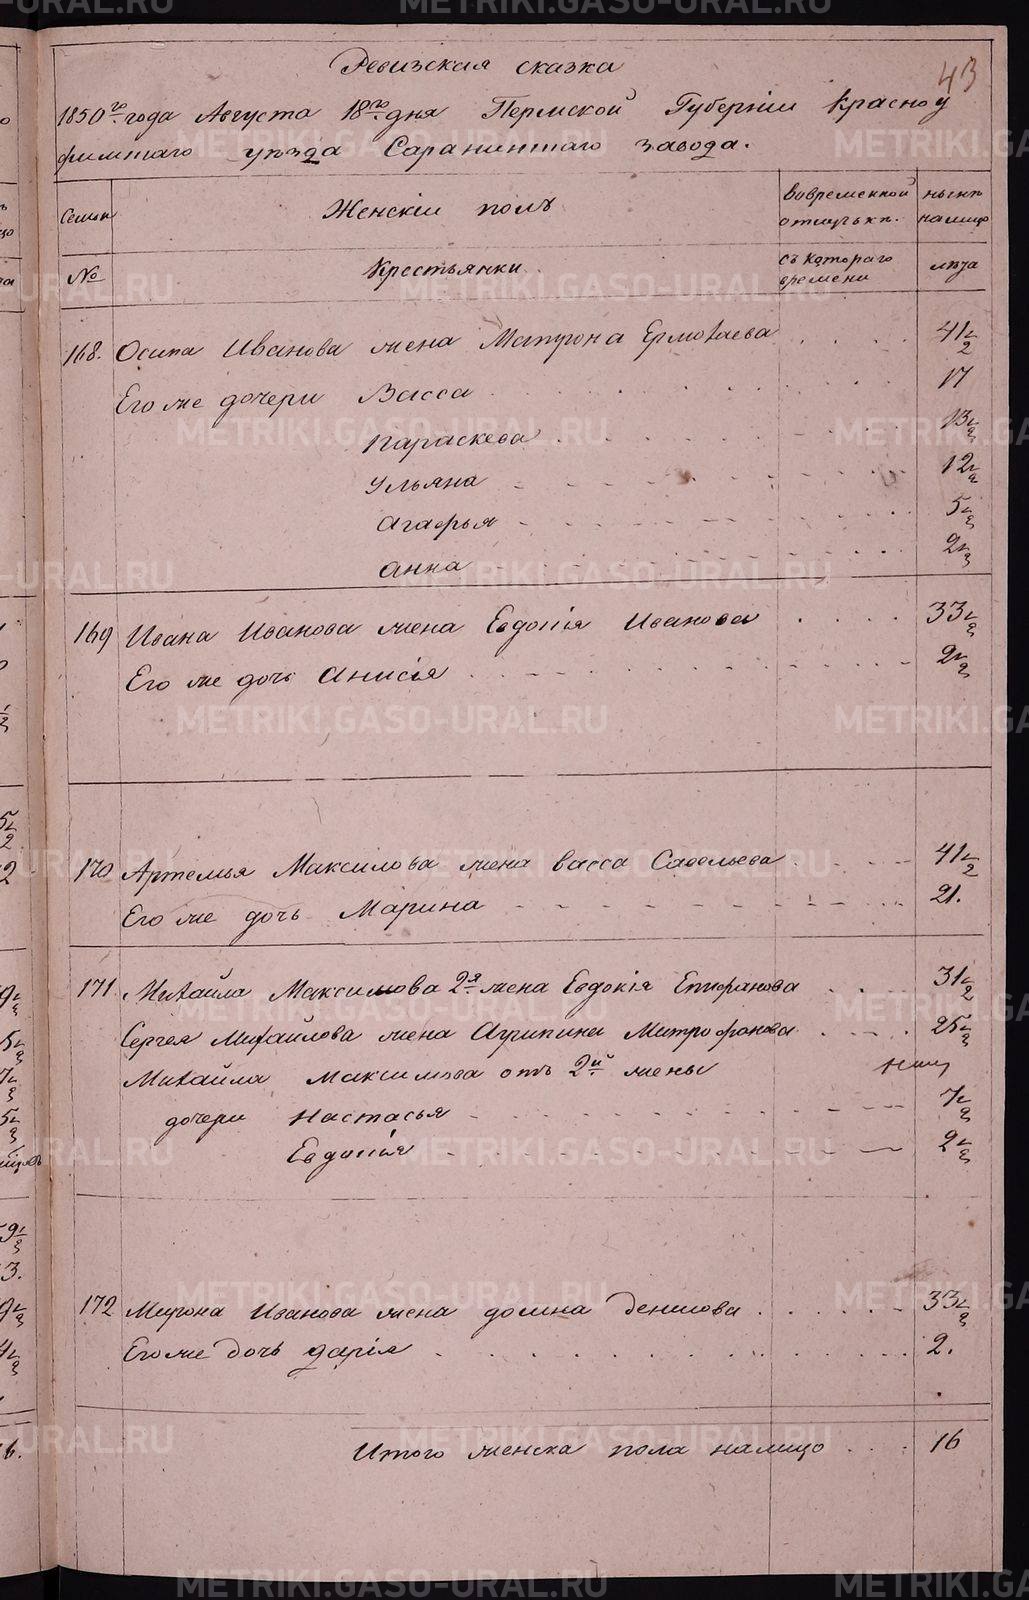 43
Ревизская сказка
1850го года Августа 18го дня Пермской Губерніи Красноу
фимскаго уезда Саранинскаго завода.
Семьи Женскій полъ вовременной отлучке. ныне налицо
№ Крестьянки съ котораго времени лета
168. Осипа Иванова жена Матрона Ермолаева 41 1/2
Его же дочери Васса 17
Параскева 13 1/2
Ульяна 12 1/2
Агафья 5 1/2
Анна 2 1/2
169 Ивана Иванова жена Евдокія Иванова 33 1/2
Его же дочь Анисія 2 1/2
170 Артемья Максимова жена Васса Савельева 41 1/2
Его же дочь Марина 21.
171. Михайла Максимова 2я жена Евдокія Епифанова 31 1/2
Сергея Михайлова жена Агрипина Митрофанова 25 1/2
Михайла Максимова отъ 2й жены
дочери Настасья 7 1/2
Евдокія 2 1/2
172 Мирона Иванова жена Домна Денисова 33 1/2
Его же дочь Дарія 2.
Итого женска пола налицо 16
METRIKI.GASO-URAL.RU